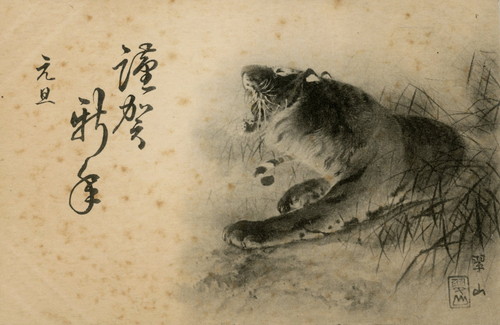 謹賀
新年
元旦
翠山